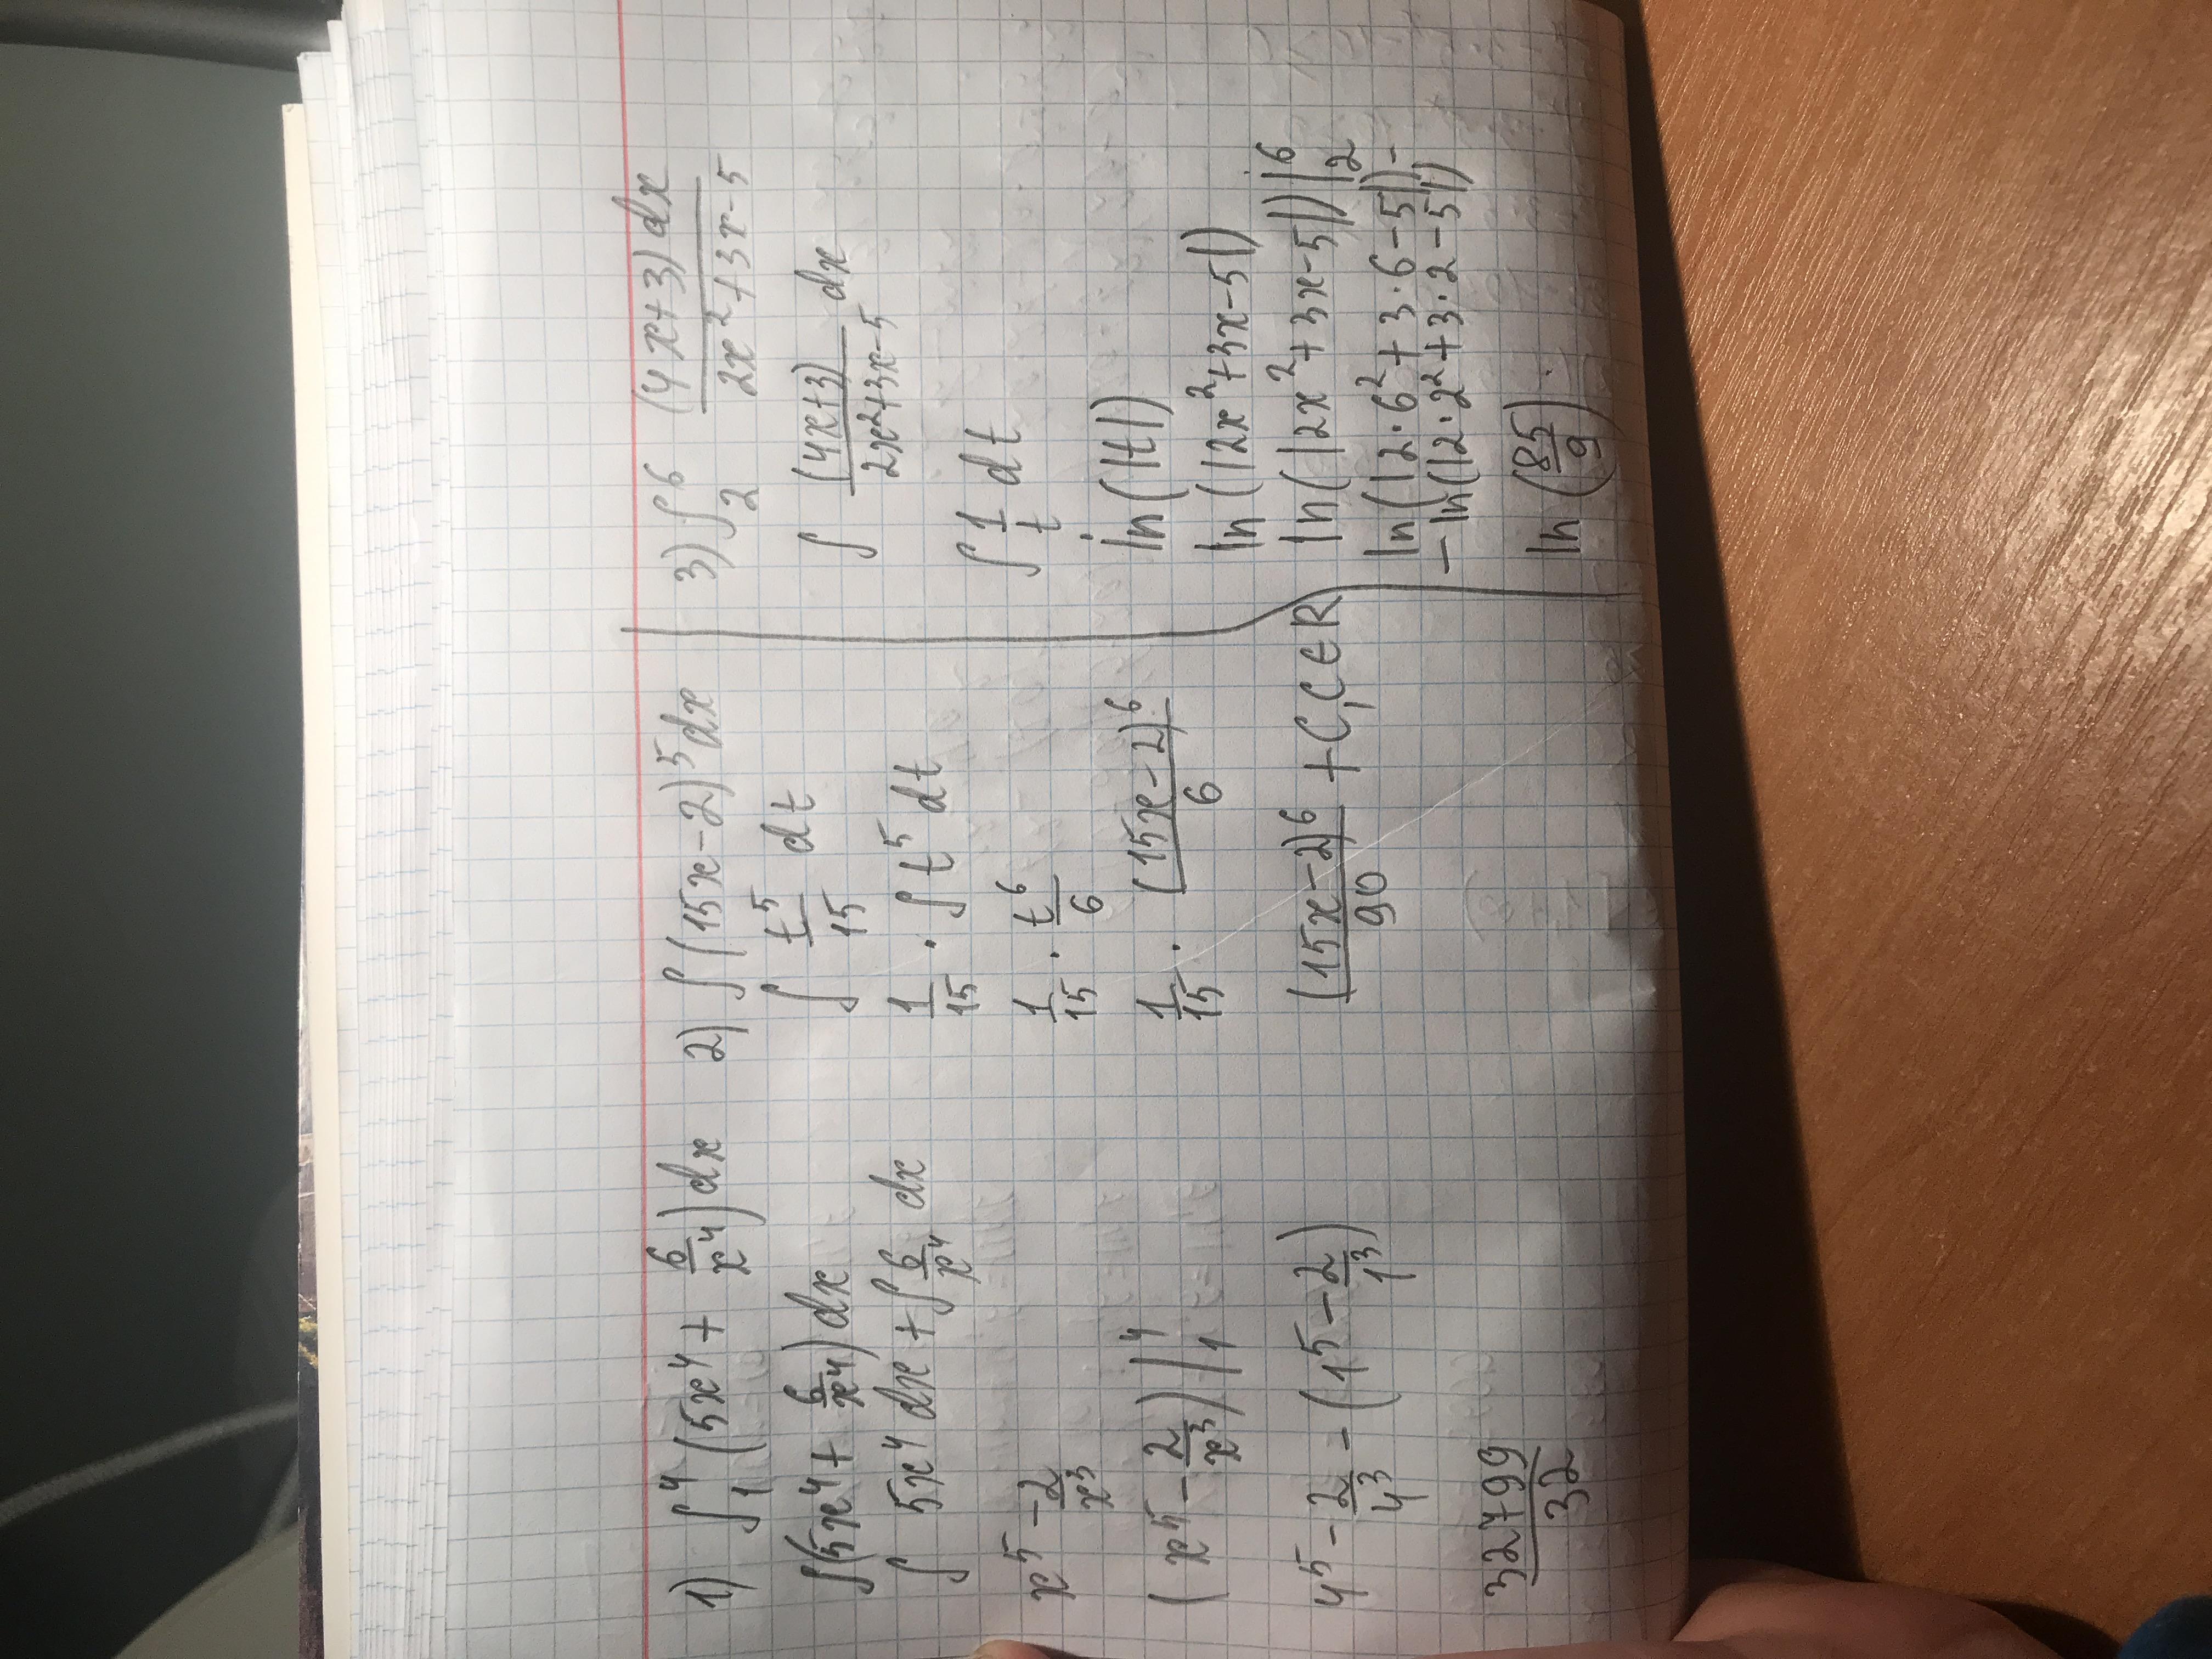 1) ∫₁⁴ (5x⁴ + 6/x⁴) dx
∫(5x⁴ + 6/x⁴) dx
∫ 5x⁴ dx + ∫ 6/x⁴ dx
x⁵ - 2/x³
(x⁵ - 2/x³) |₁⁴
4⁵ - 2/4³ - (1⁵ - 2/1³)
32799/32
2) ∫(15x-2)⁵ dx
∫ t⁵/15 dt
1/15 · ∫ t⁵ dt
1/15 · t⁶/6
1/15 · (15x-2)⁶/6
(15x-2)⁶/90 + C, C∈R
3) ∫₂⁶ (4x+3)dx/2x²+3x-5
∫ (4x+3)/2x²+3x-5 dx
∫ 1/t dt
ln(|t|)
ln(|2x²+3x-5|)
ln(|2x²+3x-5|) |₂⁶
ln(|2·6²+3·6-5|) -
- ln(|2·2²+3·2-5|)
ln(85/9).